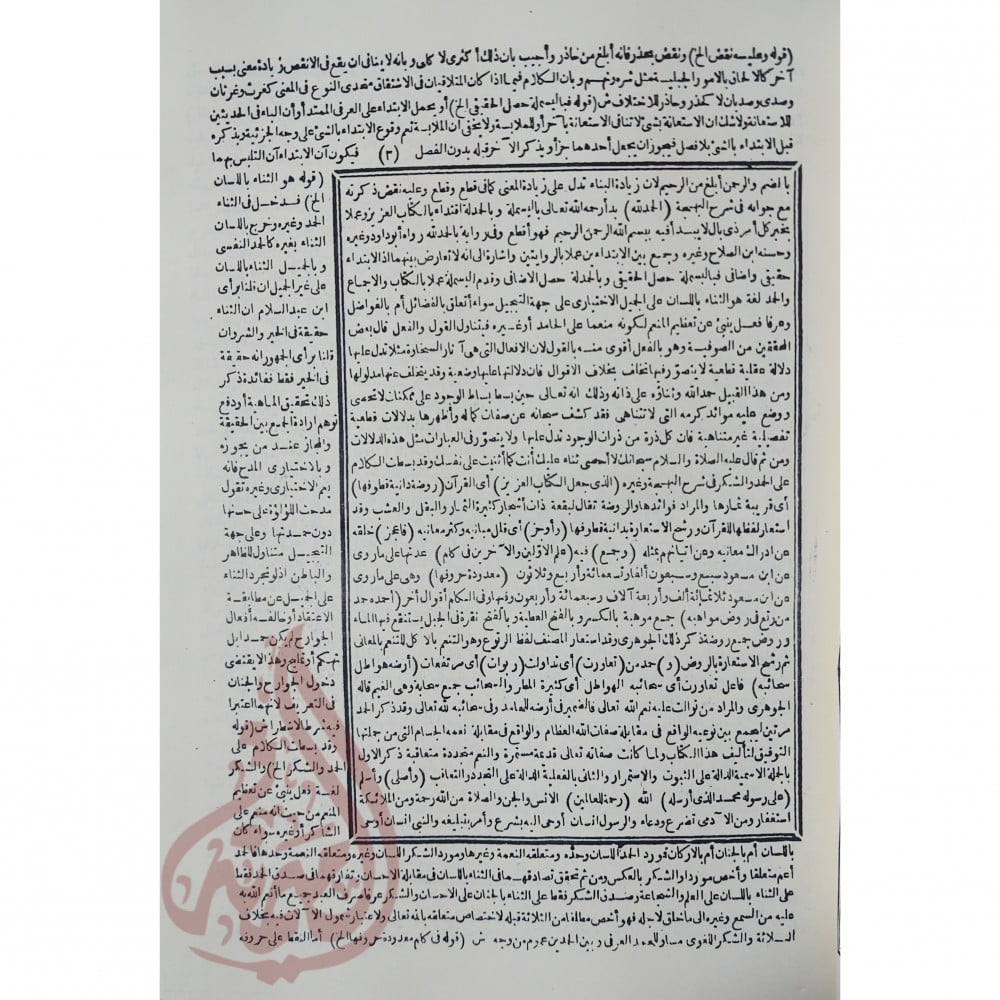 (قوله وعليه نقض الخ) ونقض بحذر فانه أبلغ من حاذر وأجيب بان ذلك أكثرى لا كلى وبانه لا ينافى ان يقع فى الانقص زيادة معنى بسبب
آخر كالالحاق بالامور الجبلية مثل شره ونهم وبان الكلام فيما اذا كان المتلاقيان فى الاشتقاق متحدى النوع فى المعنى كغرث وغرثان
وصدى وصديان لا كحذر وحاذر للاختلاف ش (قوله فبالبسملة حصل الحقيقى الخ) أو يحمل الابتداء على العرفى الممتد أو أن الباء فى الحديثين
للاستعانة ولا شك ان الاستعانة بشئ لا تنافى الاستعانة بآخر أو للملابسة ولا يخفى أن الملابسة تعم وقوع الابتداء بالشئ على وجه الجزئية وبذكره
قبل الابتداء بالشئ بلا فصل فيجوز ان يجعل أحدهما جزأ ويذكر الآخر قبله بدون الفصل (٣) فيكون آن الابتداء آن التلبس بهما
با اضم والرحمن أبلغ من الرحيم لان زيادة البناء تدل على زيادة المعنى كما فى قطع وقطع وعليه نقض ذكرته
مع جوابه فى شرح البهجة (الحمد لله) بدأ رحمه الله تعالى بالبسملة وبالحمدلة اقتداء بالكتاب العزيز وعملا
بخبر كل أمر ذى بال لا يبدأ فيه ببسم الله الرحمن الرحيم فهو أقطع وفى رواية بالحمد لله رواه أبو داود وغيره
وحسنه ابن الصلاح وغيره وجمع بين الابتداءين عملا بالروايتين واشارة الى انه لا تعارض بينهما اذ الابتداء
حقيقى واضافى فبالبسملة حصل الحقيقى وبالحمدلة حصل الاضافى وقدم البسملة عملا بالكتاب والاجماع
والحمد لغة هو الثناء باللسان على الجميل الاختيارى على جهة التبجيل سواء تعلق بالفضائل أم بالفواضل
وعرفا فعل ينبئ عن تعظيم المنعم لكونه منعما على الحامد أو غيره فيتناول القول والفعل قال بعض
المحققين من الصوفية وهو بالفعل أقوى منه بالقول لان الافعال التى هى آثار السخاوة مثلا تدل عليها
دلالة عقلية قطعية لا يتصور فيها تخلف بخلاف الاقوال فان دلالتها عليها وضعية وقد يتخلف عنها مدلولها
ومن هذا القبيل حمد الله وثناؤه على ذاته وذلك انه تعالى حين بسط بساط الوجود على ممكنات لا تحصى
ووضع عليه موائد كرمه التى لا تتناهى فقد كشف سبحانه عن صفات كماله وأظهرها بدلالات قطعية
تفصيلية غير متناهية فان كل ذرة من ذرات الوجود تدل عليها ولا يتصور فى العبارات مثل هذه الدلالات
ومن ثم قال عليه الصلاة والسلام سبحانك لا أحصى ثناء عليك أنت كما أثنيت على نفسك وقد بسطت الكلام
على الحمد والشكر فى شرح البهجة وغيره (الذى جعل الكتاب العزيز) أى القرآن (روضة دانية قطوفها)
أى قريبة ثمارها والمراد فوائدها والروضة تقال لبقعة ذات أشجار كثيرة الثمار والبقل والعشب وقد
استعار لفظها للقرآن ورشح الاستعارة بدانية قطوفها (وأوجز) أى قلل مبانيه وكثر معانيه (فاعجز) خلقه
عن ادراك معانيه وعن اتيانهم بمثله (وجمع) فيه (علم الاولين والآخرين فى كلم) عدتها على ما روى
عن ابن مسعود سبع وسبعون ألفا وتسعمائة وأربع وثلاثون (معدودة حروفها) وهى على ما روى
عن ابن مسعود ثلاثمائة ألف وأربعة آلاف وسبعمائة وأربعون وفيها وفى الكلم أقوال أخر (أحمده حمد
من رتع فى روض مواهبه) جمع موهبة بالكسر وبالفتح العطية وبالفتح نقرة فى الجبل يستنقع فيها الماء
وروض جمع روضة ذكر ذلك الجوهرى وقد استعار المصنف لفظ الرتوع وهو التنعم بالاكل للتنعم بالمعانى
ثم رشح الاستعارة بالروض (و) حمد من (تعاورت) أى تداولت (ربوات) أى مرتفعات (أرضه هواطل
سحائبه) فاعل تعاورت أى سحائبه الهواطل أى كثيرة المطر والسحائب جمع سحابة وهى الغيم قاله
الجوهرى والمراد من توالت عليه نعم الله تعالى فالضمير فى أرضه للحامد وفى سحائبه لله تعالى وقد ذكر الحمد
مرتين ليجمع بين نوعيه الواقع فى مقابلة صفات الله العظام والواقع فى مقابلة نعمه الجسام التى من جملتها
التوفيق لتأليف هذا الكتاب ولما كانت صفاته تعالى قديمة مستمرة والنعم متجددة متعاقبة ذكر الاول
بالجملة الاسمية الدالة على الثبوت والاستمرار والثانى بالفعلية الدالة على التجدد والتعاقب (وأصلى) وأسلم
(على رسوله محمد الذى أرسله) الله (رحمة للعالمين) الانس والجن والصلاة من الله رحمة ومن الملائكة
استغفار ومن الآدمى تضرع ودعاء والرسول انسان أوحى اليه بشرع وأمر بتبليغه والنبى انسان أوحى
(قوله هو الثناء باللسان
الخ) فدخل فى الثناء
الحمد وغيره وخرج باللسان
الثناء بغيره كالحمد النفسى
وبالجميل الثناء باللسان
على غير الجميل ان قلنا برأى
ابن عبد السلام ان الثناء
حقيقة فى الخير والشر وان
قلنا برأى الجمهور انه حقيقة
فى الخير فقط ففائدة ذكر
ذلك تحقيق الماهية أو دفع
توهم ارادة الجمع بين الحقيقة
والمجاز عند من يجوزه
وبالاختيارى المدح فانه
يعم الاختيارى وغيره تقول
مدحت اللؤلؤة على حسنها
دون حمدتها وعلى جهة
التبجيل متناول للظاهر
والباطن اذ لو تجرد الثناء
على الجميل عن مطابقة
الاعتقاد أو خالفه أفعال
الجوارح لم يكن حمدا بل
تهكم أو تمليح وهذا لا يقتضى
دخول الجوارح والجنان
فى التعريف لانهما اعتبرا
فيه شرطا لا شطرا ش (قوله
وقد بسطت الكلام على
الحمد والشكر الخ) والشكر
لغة فعل ينبئ عن تعظيم
المنعم من حيث انه منعم على
الشاكر أو غيره سواء كان
باللسان أم بالجنان أم بالاركان فمورد الحمد اللسان وحده ومتعلقه النعمة وغيرها ومورد الشكر اللسان وغيره ومتعلقه النعمة وحدها فالحمد
أعم متعلقا وأخص موردا والشكر بالعكس ومن ثم تحقق تصادقهما فى الثناء باللسان فى مقابلة الاحسان وتفارقهما فى صدق الحمد فقط
على الثناء باللسان على العلم والشجاعة وصدق الشكر فقط على الثناء بالجنان على الاحسان والشكر عرفا صرف العبد جميع ما أنعم الله به
عليه من السمع وغيره الى ما خلق لاجله فهو أخص مطلقا من الثلاثة قبله لاختصاص متعلقه بالله تعالى ولاعتبار شمول الآلات فيه بخلاف
الثلاثة والشكر اللغوى مساو للحمد العرفى وبين الحمدين عموم من وجه ش (قوله فى كلم معدودة حروفها الخ) أما اللفظ على حروفه